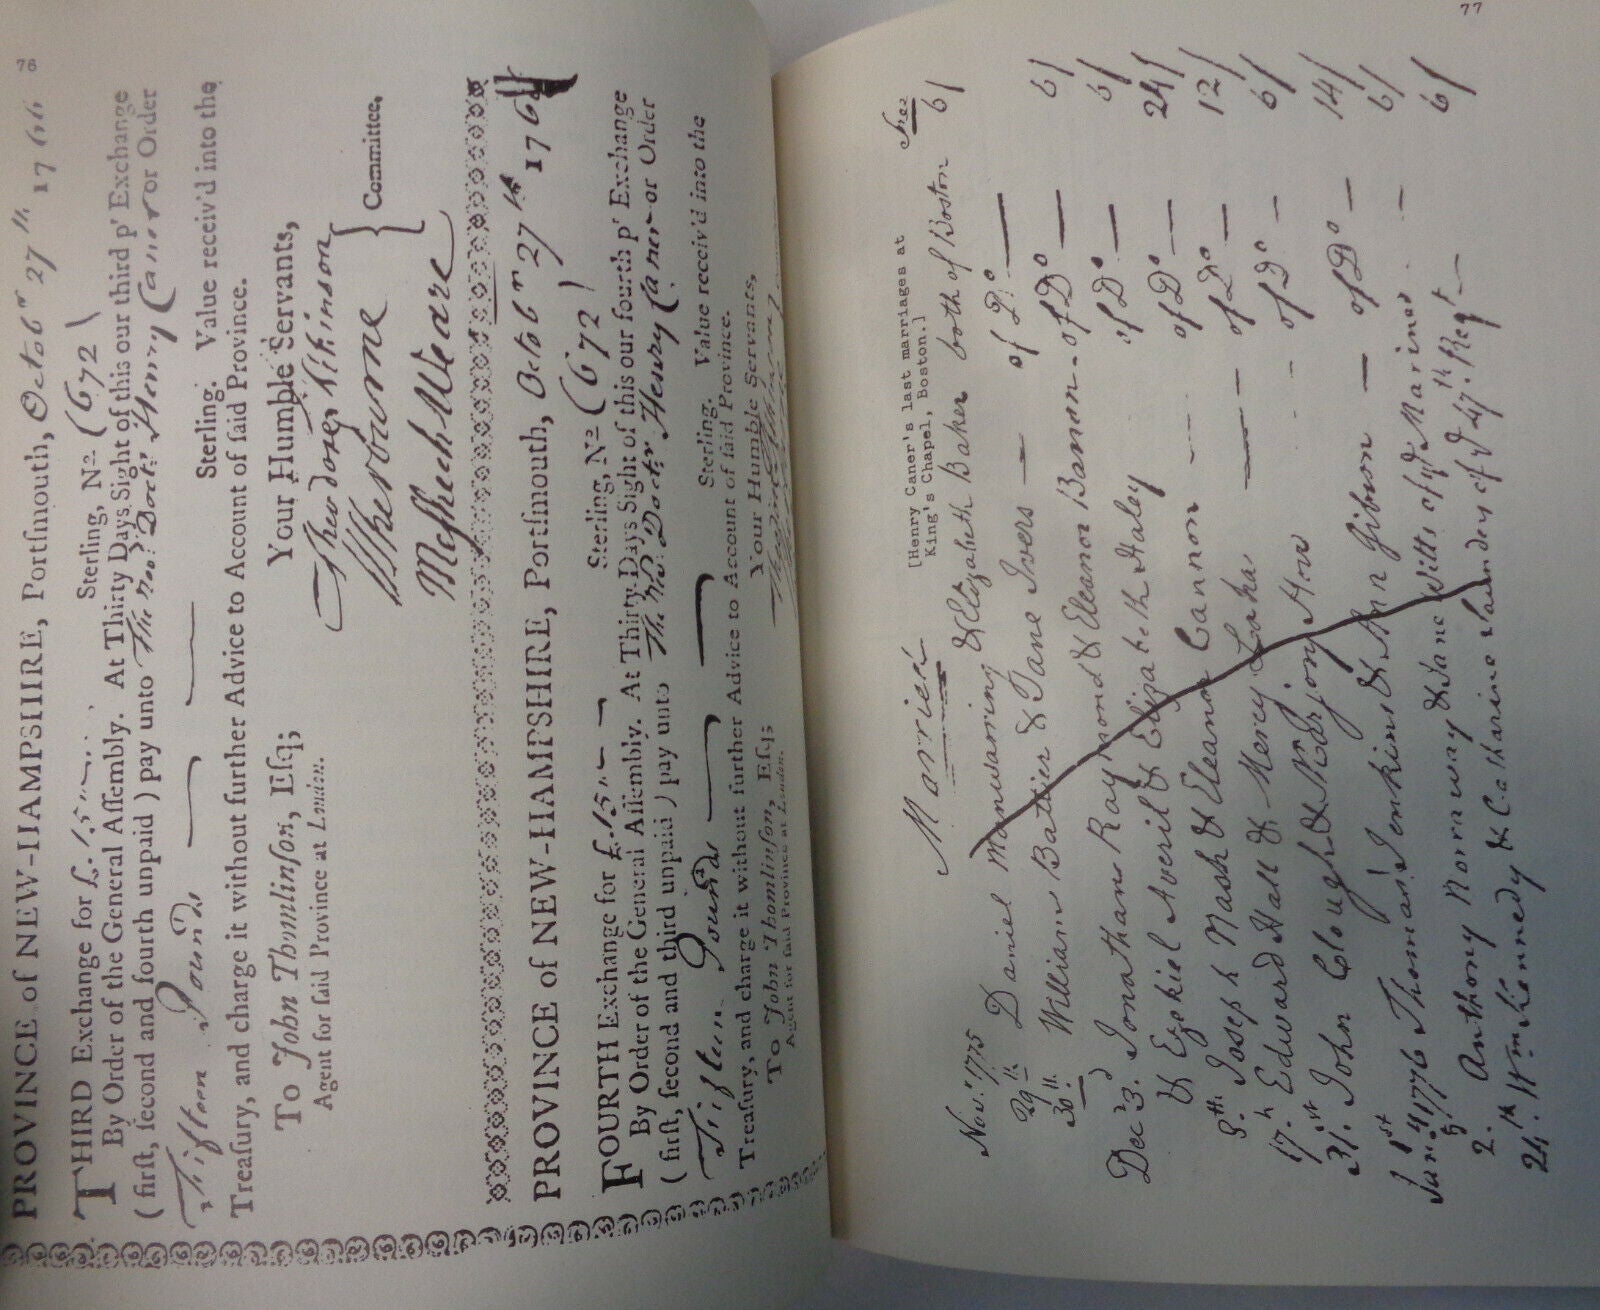 76
PROVINCE of NEW-HAMPSHIRE, Portſmouth, Octobr 27th 1766
THIRD Exchange for £.15 Sterling, No (672)
By Order of the General Aſſembly. At Thirty Days Sight of this our third pr Exchange
(firſt, ſecond and fourth unpaid) pay unto The Revd Doctr Henry Caner or Order
Fifteen Pounds Sterling. Value receiv'd into the
Treaſury, and charge it without further Advice to Account of ſaid Province.
Your Humble Servants,
To John Thomlinſon, Eſq;
Agent for ſaid Province at London.
Theodore Atkinson
Sherburne
Meshech Weare
} Committee,
PROVINCE of NEW-HAMPSHIRE, Portſmouth, Octobr 27th 1766
FOURTH Exchange for £.15 Sterling, No (672)
By Order of the General Aſſembly. At Thirty Days Sight of this our fourth pr Exchange
(firſt, ſecond and third unpaid) pay unto The Revd Doctr Henry Caner or Order
Fifteen Pounds Sterling. Value receiv'd into the
Treaſury, and charge it without further Advice to Account of ſaid Province.
Your Humble Servants,
To John Thomlinſon, Eſq;
Agent for ſaid Province at London.
77
[Henry Caner's last marriages at
King's Chapel, Boston.]
Married Fees
Nov. 1775
29th. Daniel Manwarring & Elizabeth Baker both of Boston 6/
30th. William Battier & Jane Ivers — of Do — 6/
Dec 3. Jonathan Raymond & Eleanor Bannon - of Do — 6/
& Ezekiel Averil & Elizabeth Haley of Do — 24/
8th. Joseph Nash & Eleanor Cannon --- of Do — 12/
17th. Edward Hall & Mercy Lake — of Do — 6/
31st. John Clough & Marjory Hon --- of Do — 14/
Jany 1st 1776 Thomas Jenkins & Ann Gibson — of Do — 6/
2. Anthony Norraway & Jane Witts of ye Marines -- 6/
24th. Wm Kennedy & Catharine Saunders of ye 47th. Regt —